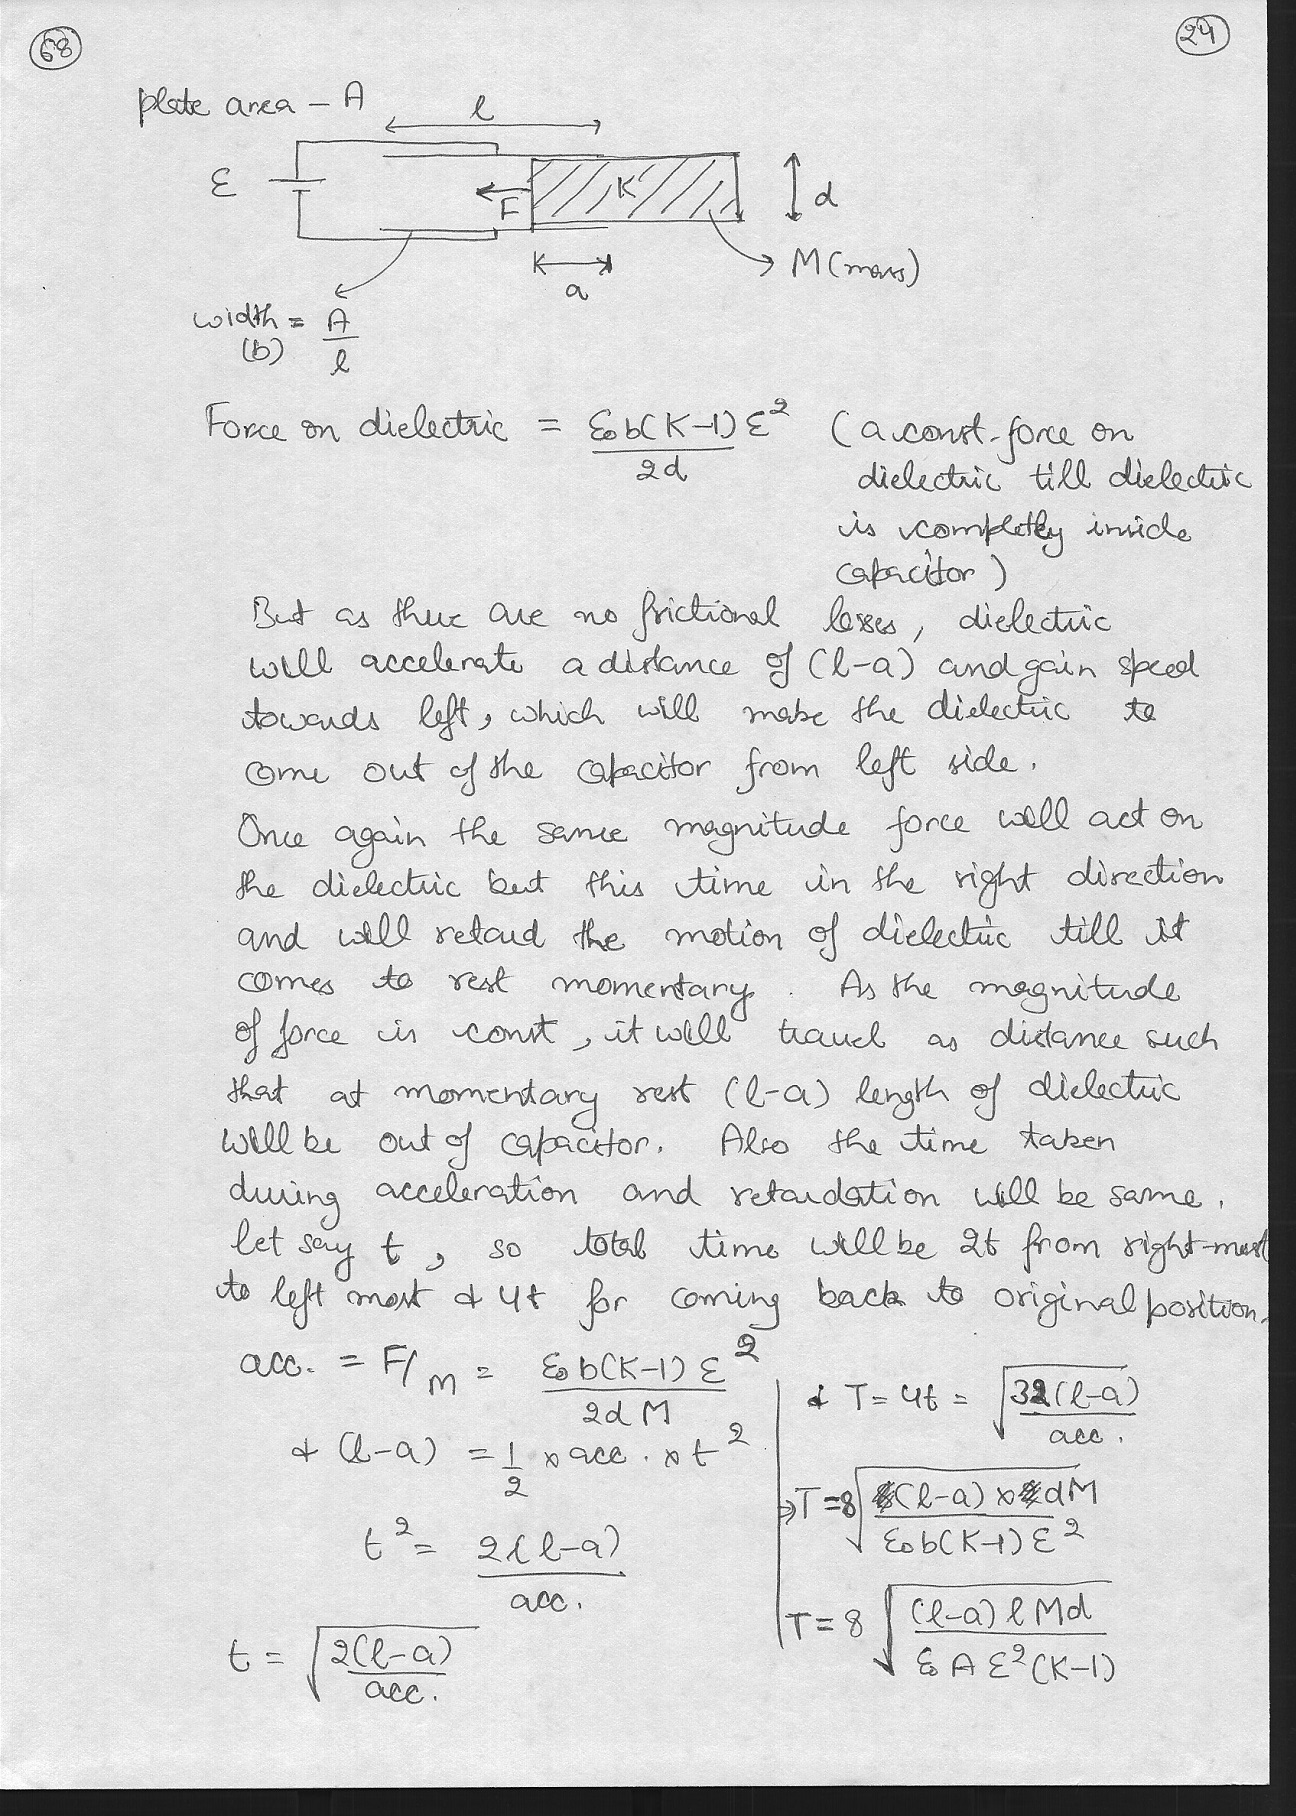 68
24
plate area - A
l
ε
F
K
d
a
M (mass)
width = A/l
(b)
Force on dielectric = ε₀b(K-1)ε²/2d (a const. force on
dielectric till dielectric
is completly inside
capacitor)
But as there are no frictional losses, dielectric
will accelerate a distance of (l-a) and gain speed
towards left, which will make the dielectric to
come out of the capacitor from left side.
Once again the same magnitude force will act on
the dielectric but this time in the right direction
and will retard the motion of dielectric till it
comes to rest momentary. As the magnitude
of force is const, it will travel as distance such
that at momentary rest (l-a) length of dielectric
will be out of capacitor. Also the time taken
during acceleration and retardation will be same.
let say t, so total time will be 2t from right-most
to left most & 4t for coming back to original position.
acc. = F/M = ε₀b(K-1)ε²/2dM
& (l-a) = 1/2 × acc. × t²
t² = 2(l-a)/acc.
t = √(2(l-a)/acc.)
& T = 4t = √(32(l-a)/acc.)
⇒ T = 8√((l-a) × dM/ε₀b(K-1)ε²)
T = 8√((l-a) l Md/ε₀ A ε²(K-1))